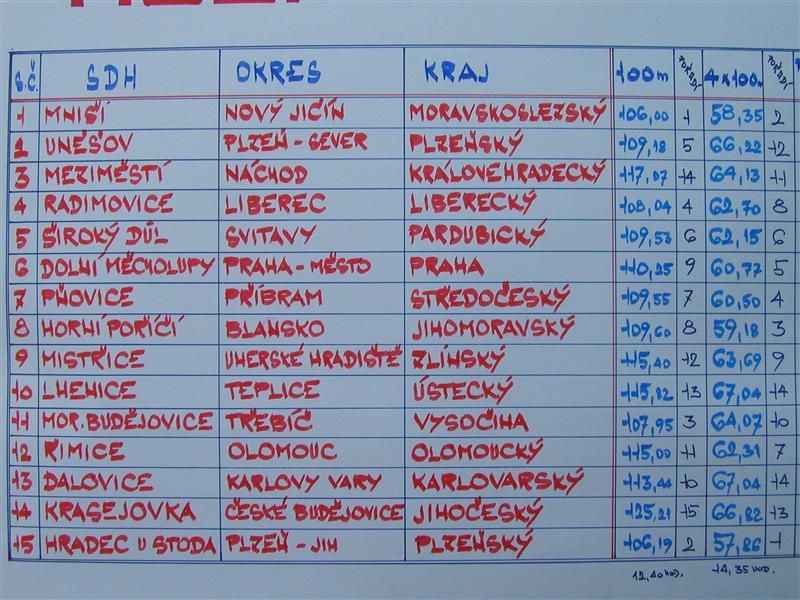 S.Č. SDH OKRES KRAJ 100m POŘADÍ 4x100m POŘADÍ
1 MNIŠÍ NOVÝ JIČÍN MORAVSKOSLEZSKÝ 106,00 1 58,35 2
2 UNĚŠOV PLZEŇ - SEVER PLZEŇSKÝ 109,18 5 66,22 12
3 MEZIMĚSTÍ NÁCHOD KRÁLOVEHRADECKÝ 117,07 14 64,13 11
4 RADIMOVICE LIBEREC LIBERECKÝ 108,04 4 62,70 8
5 ŠIROKÝ DŮL SVITAVY PARDUBICKÝ 109,53 6 62,15 6
6 DOLNÍ MĚCHOLUPY PRAHA - MĚSTO PRAHA 110,25 9 60,77 5
7 PŇOVICE PŘÍBRAM STŘEDOČESKÝ 109,55 7 60,50 4
8 HORNÍ POŘÍČÍ BLANSKO JIHOMORAVSKÝ 109,60 8 59,18 3
9 MISTŘICE UHERSKÉ HRADIŠTĚ ZLÍNSKÝ 115,40 12 63,69 9
10 LHENICE TEPLICE ÚSTECKÝ 115,82 13 67,04 14
11 MOR. BUDĚJOVICE TŘEBÍČ VYSOČINA 107,95 3 64,07 10
12 ŘIMICE OLOMOUC OLOMOUCKÝ 115,00 11 62,31 7
13 DALOVICE KARLOVY VARY KARLOVARSKÝ 113,44 10 67,04 14
14 KRASEJOVKA ČESKÉ BUDĚJOVICE JIHOČESKÝ 125,21 15 66,82 13
15 HRADEC U STODA PLZEŇ - JIH PLZEŇSKÝ 106,19 2 57,86 1
12,40 HOD. 14,35 HOD.